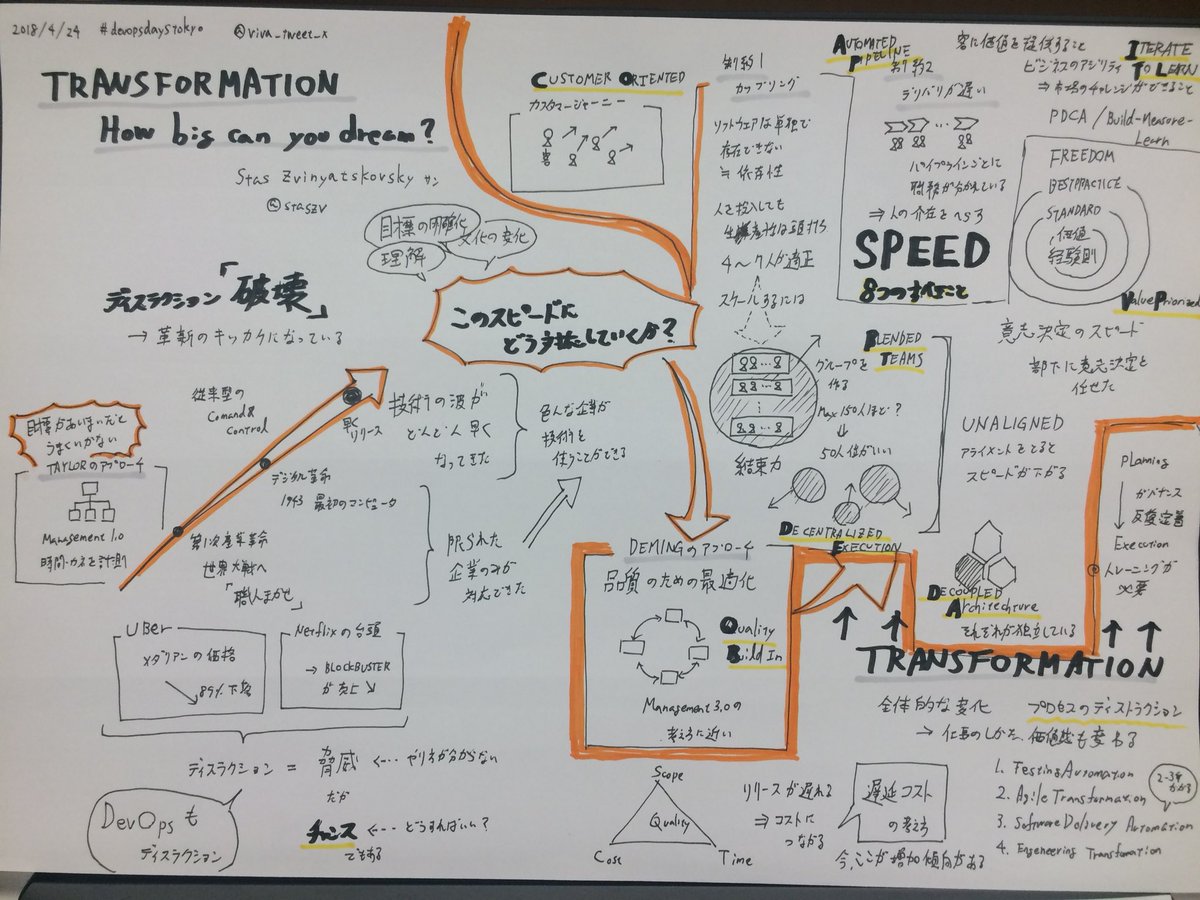 2018/4/24 #devopsdaystokyo @viva_tweet_x
TRANSFORMATION
How big can you dream?
Stas Zvinyatskovsky サン
@staszv
目標の明確化
文化の変化
理解
ディスラクション「破壊」
→ 革新のキッカケになっている
このスピードに
どう対抗していくか?
目標があいまいだと
うまくいかない
TAYLORのアプローチ
Management 1.0
時間・カネを計測
従来型の
Comand&
Control
早く
リリース
デジタル革命
1943 最初のコンピュータ
第1次産業革命
世界大戦へ
「職人まかせ」
技術の波が
どんどん早く
なってきた
色んな企業が
技術を
使うことができる
限られた
企業のみが
対応できた
Uber
メダリアンの価格
89%下落
Netflixの台頭
→ BLOCKBUSTER
が売上↘
ディスラクション = 脅威 <--- やり方が分からない
だが
チャンス <--- どうすればいい?
でもある
DevOpsも
ディスラクション
CUSTOMER ORIENTED
カスタマージャーニー
客
制約1
カップリング
ソフトウェアは単独で
存在できない
≒ 依存性
人を投入しても
生産性は頭打ち
4〜7人が適正
スケールするには
グループを
作る
Max 150人ほど?
↓
50人位がいい
結束力
BLENDED
TEAMS
DECENTRALIZED
EXECUTION
AUTOMATED
PIPELINE
制約2
デリバリが遅い
パイプラインごとに
職務が分かれている
⇒ 人の介在をへらす
SPEED
8つのすべきこと
客に価値を提供すること
ビジネスのアジリティ
⇒ 市場のチャレンジができること
ITERATE
TO LEARN
PDCA / Build-Measure-
Learn
FREEDOM
BESTPRACTICE
STANDARD
価値
経験則
Value Priorized
意志決定のスピード
部下に意志決定を
任せた
UNALIGNED
アライメントをとると
スピードが下がる
Planning
ガバナンス
反復定着
Execution
トレーニングが
必要
DECOUPLED
Architechture
それぞれが独立している
DEMINGのアプローチ
品質のための最適化
Quality
Build In
Management 3.0の
考えに近い
TRANSFORMATION
全体的な変化
プロセスのディストラクション
→ 仕事のしかた、価値感も変わる
1. Testing Automation
2. Agile Transformation
3. Software Delivery Automation
4. Engeneering Transfomation
2-3年
かかる
Scope
Quality
Cost
Time
リリースが遅れる
⇒ コストに
つながる
遅延コスト
の考え方
今、ここが増加傾向がある